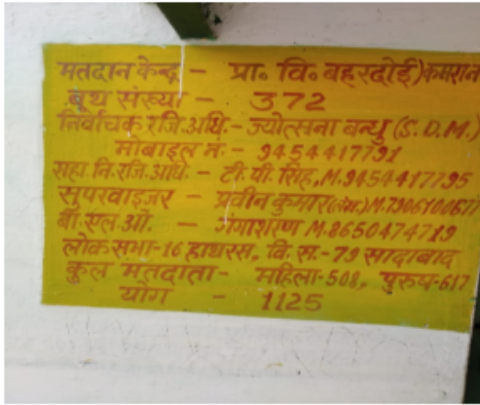 मतदान केन्द्र - प्रा० वि० बहरदोई) कमरान
बूथ संख्या - 372
निर्वाचक रजि. अधि. - ज्योत्सना बन्धु (S.D.M.)
मोबाइल नं. - 9454417791
सहा. नि. रजि. अधि. - टी. पी. सिंह, M.9454417795
सुपरवाइजर - प्रवीन कुमार M.7906100677
बी. एल. ओ. - गंगाशरण M.8650474719
लोक सभा-16 हाथरस, वि. स.-79 सादाबाद
कुल मतदाता - महिला-508, पुरुष-617
योग - 1125